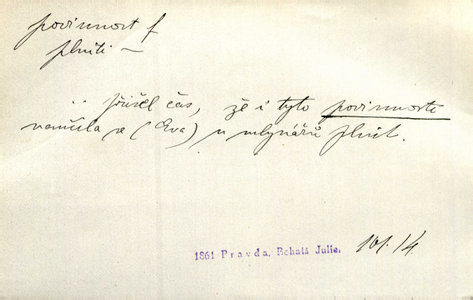 povinnost f
plniti ~
.. přišel čas, že i tyto povinnosti
naučila se (Eva) u mlynářů plnit.
1861 Pravda, Bohatá Julie. 101/4.